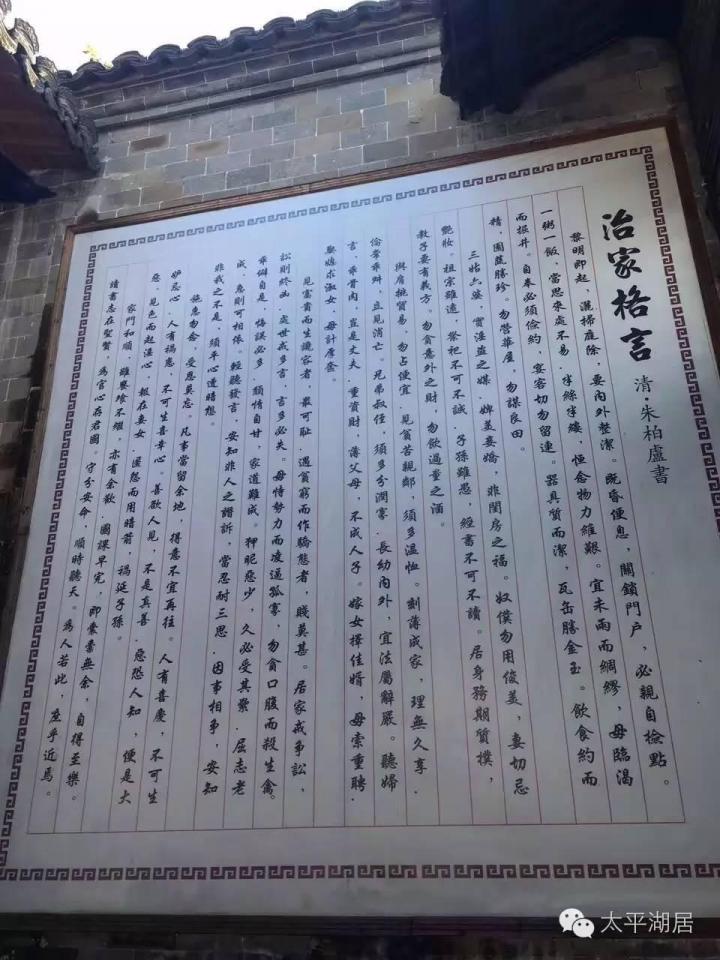 治家格言 清·朱柏廬書
黎明即起，灑掃庭除，要內外整潔。既昏便息，關鎖門戶，必親自檢點。
一粥一飯，當思來處不易．半絲半縷，恆念物力維艱。宜未雨而綢繆，毋臨渴
而掘井。自奉必須儉約，宴客切勿留連。器具質而潔，瓦缶勝金玉。飲食約而
精，園蔬勝珍。勿營華屋，勿謀良田。
三姑六婆，實淫盜之媒．婢美妾嬌，非閨房之福。奴僕勿用俊美，妻切忌
艷妝。祖宗雖遠，祭祀不可不誠．子孫雖愚，經書不可不讀。居身務期質樸，
教子要有義方。勿貪意外之財，勿飲過量之酒。
與肩挑貿易，勿占便宜．見貧苦親鄰，須多溫恤。刻薄成家，理無久享．
倫常乖舛，立見消亡。兄弟叔侄，須多分潤寡．長幼內外，宜法屬辭嚴。聽婦
言，乖骨肉，豈是丈夫．重資財，薄父母，不成人子。嫁女擇佳婿，毋索重聘．
娶媳求淑女，毋計厚奩。
見富貴而生諂容者，最可恥．遇貧窮而作驕態者，賤莫甚。居家戒爭訟，
訟則終凶．處世戒多言，言多必失。毋恃勢力而凌逼孤寡，勿貪口腹而殺生禽。
乖僻自是，悔誤必多．頹惰自甘，家道難成。狎昵惡少，久必受其累．屈志老
成，急則可相依。輕聽發言，安知非人之譖訴，當忍耐三思．因事相爭，安知
非我之不是，須平心遭暗想。
施惠勿念，受恩莫忘。凡事當留余地，得意不宜再往。人有喜慶，不可生
妒忌心．人有禍患，不可生喜幸心。善欲人見，不是真善．惡恐人知，便是大
惡．見色而起淫心，報在妻女．匿怨而用暗箭，禍延子孫。
家門和順，雖饔飧不繼，亦有余歡．國課早完，即囊橐無余，自得至樂。
讀書志在聖賢，為官心存君國。守分安命，順時聽天。為人若此，庶乎近焉。
太平湖居